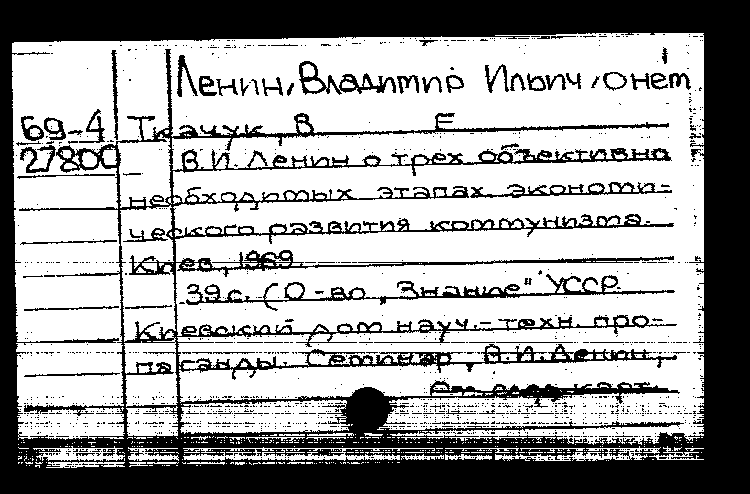 Ленин, Владимир Ильич, о нем
69-4 Ткачук, В Е
27800 В.И. Ленин о трех объективно
необходимых этапах экономи-
ческого развития коммунизма.
Киев, 1969.
39 с. (О-во „Знание" УССР.
Киевский дом науч.-техн. про-
паганды. Семинар „В.И. Ленин,
См. след. карт.